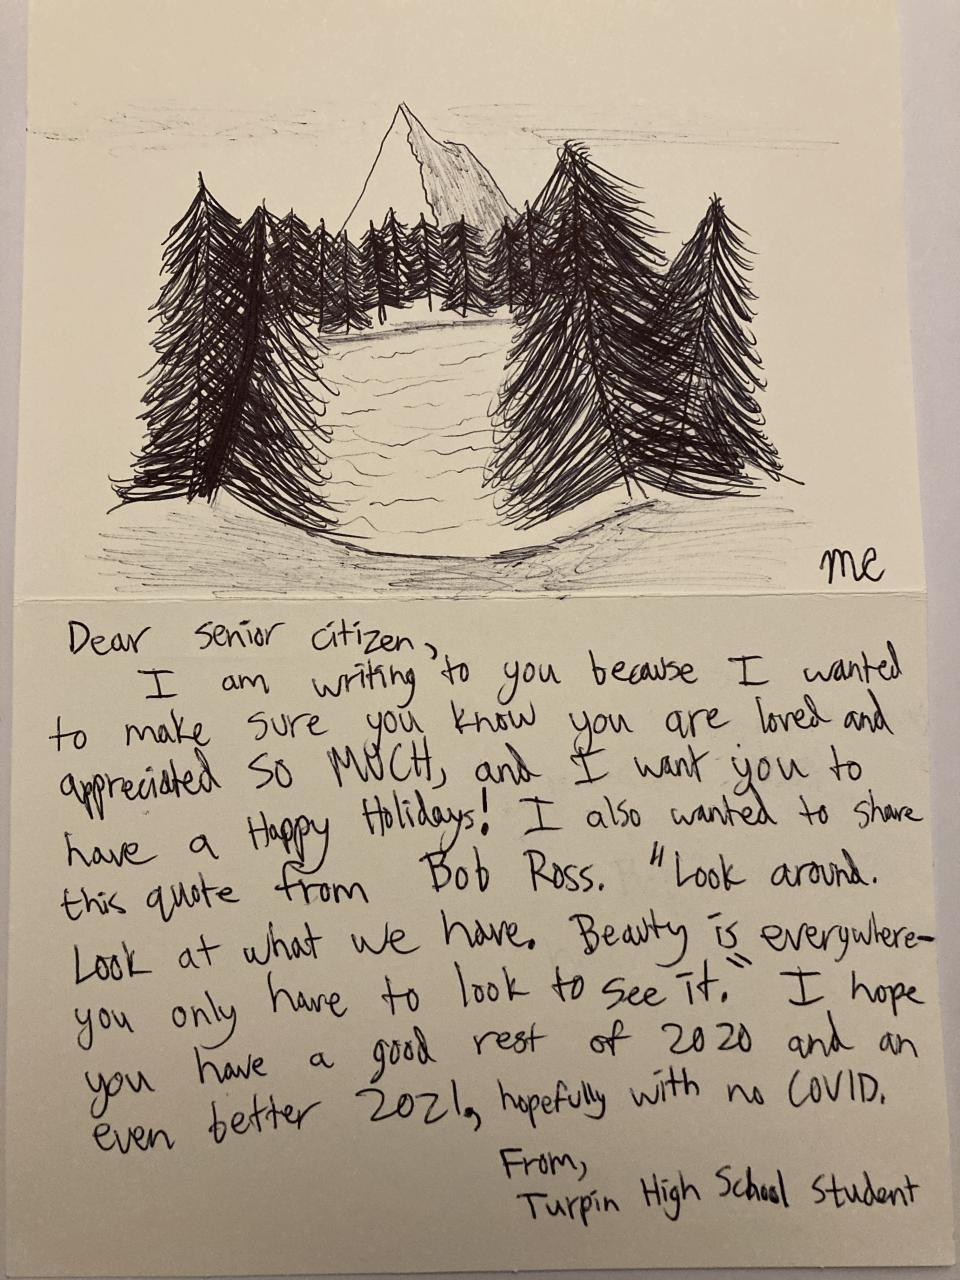 mc
Dear senior citizen,
I am writing to you because I wanted
to make sure you know you are loved and
appreciated SO MUCH, and I want you to
have a Happy Holidays! I also wanted to share
this quote from Bob Ross. "Look around.
Look at what we have. Beauty is everywhere-
you only have to look to see it." I hope
you have a good rest of 2020 and an
even better 2021, hopefully with no COVID.
From,
Turpin High School Student